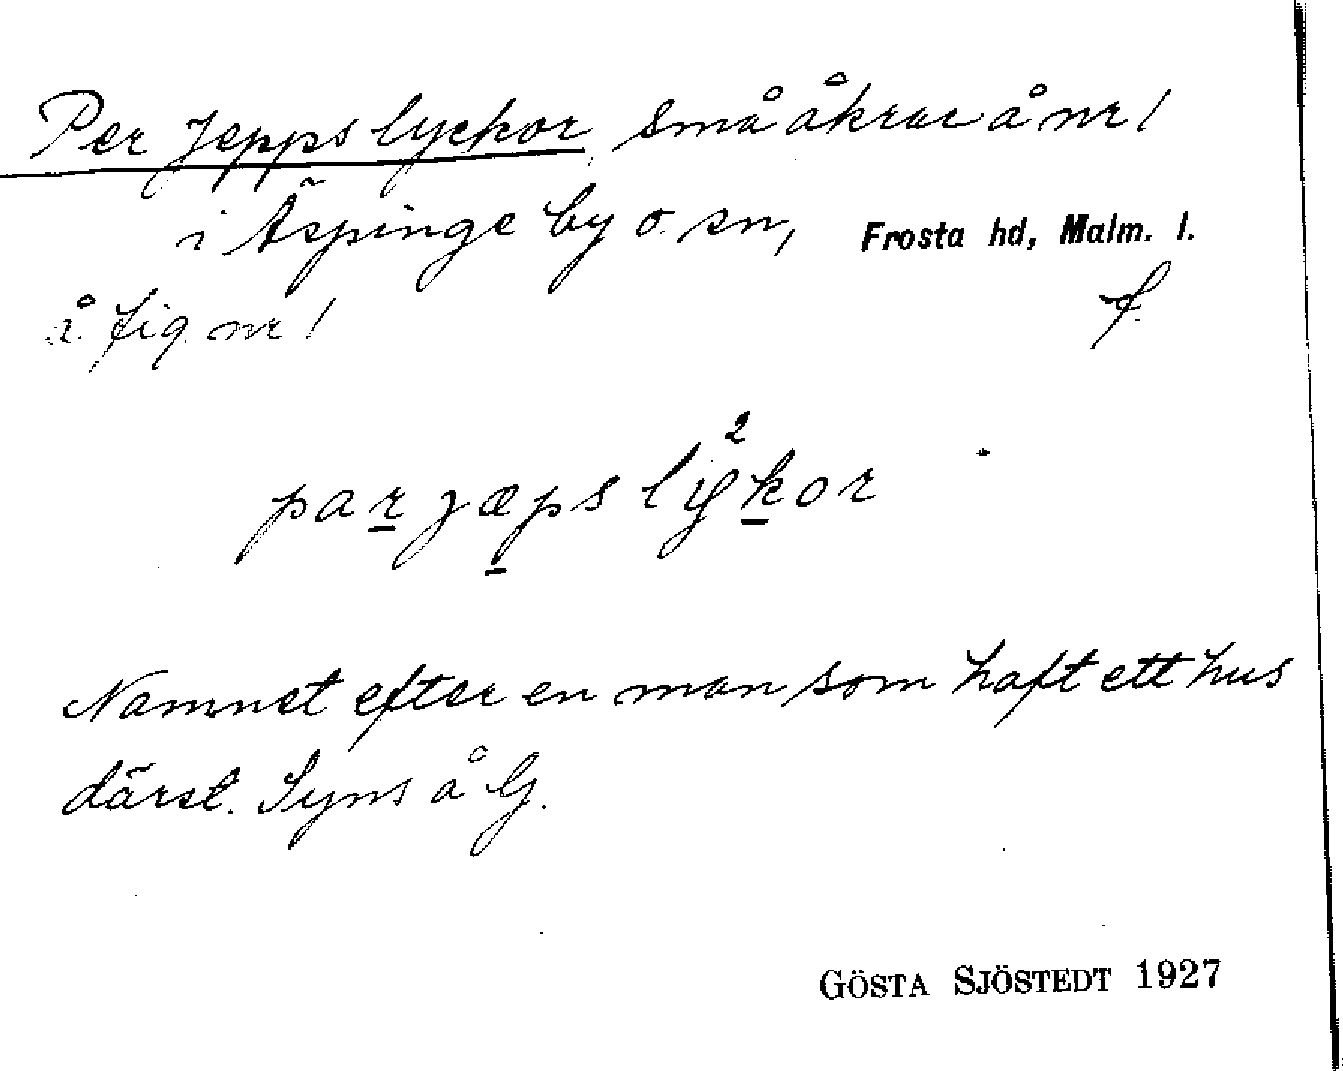 Per Jepps lyckor, små åkrar å nr 1
i Äspinge by o. sn, Frosta hd, Malm. l.
å fig. nr 1 f.
2
par jæps lykor
Namnet efter en man som haft ett hus
därst. Syns å G.
GÖSTA SJÖSTEDT 1927